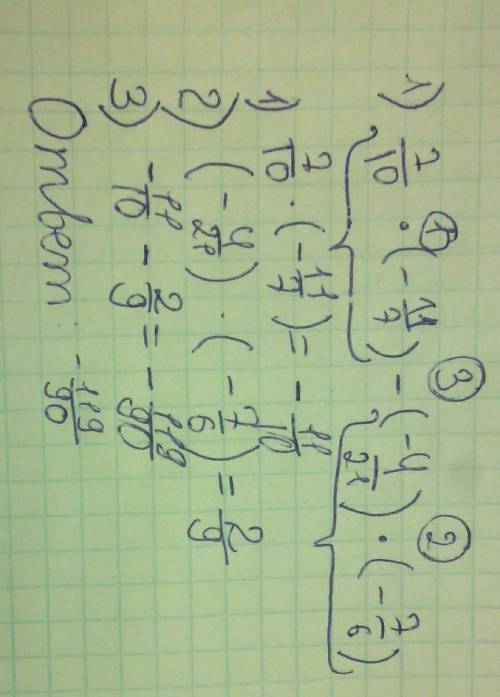 1) 7/10 · (-11/7) - (-4/21) · (-7/6)
① ③ ②
1) 7/10 · (-11/7) = - 11/10
2) (-4/21) · (-7/6) = 2/9
3) -11/10 - 2/9 = - 119/90
Ответ: -119/90